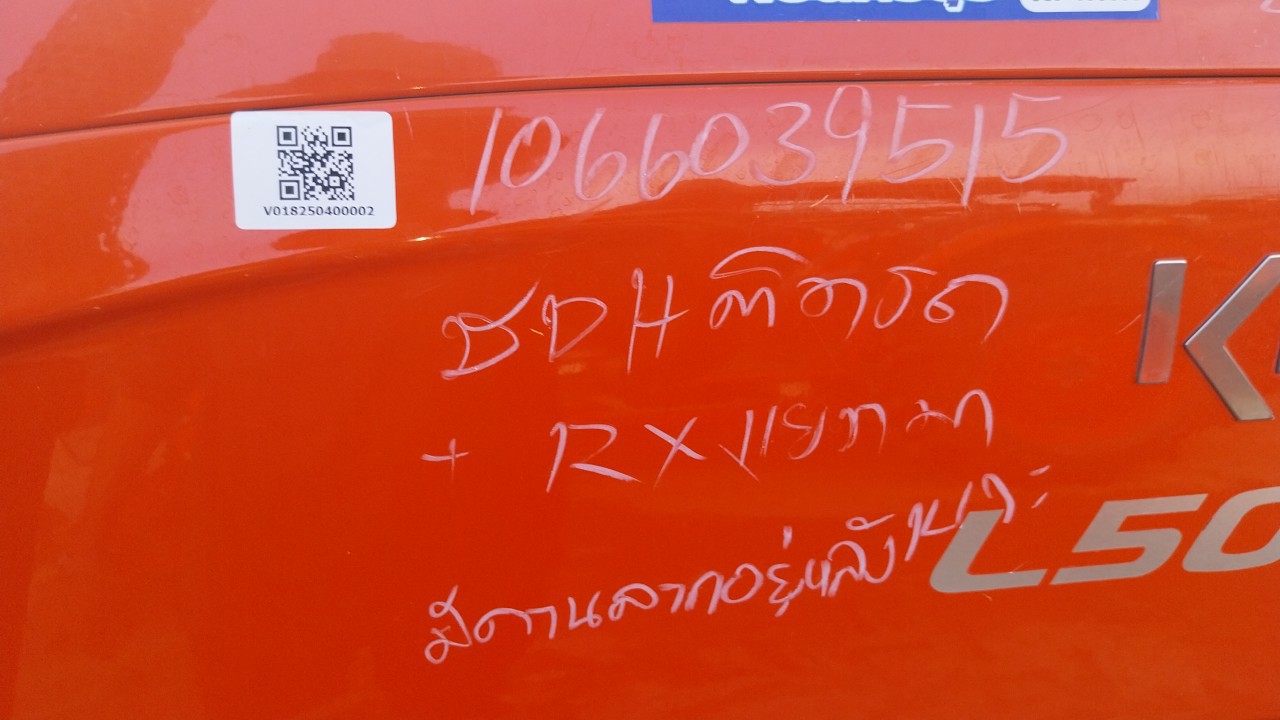 V018250400002
1066039515
ชDHติดรถ
+ RXแยกมา
มีคานลากอยู่หลังเบาะ
K
L50